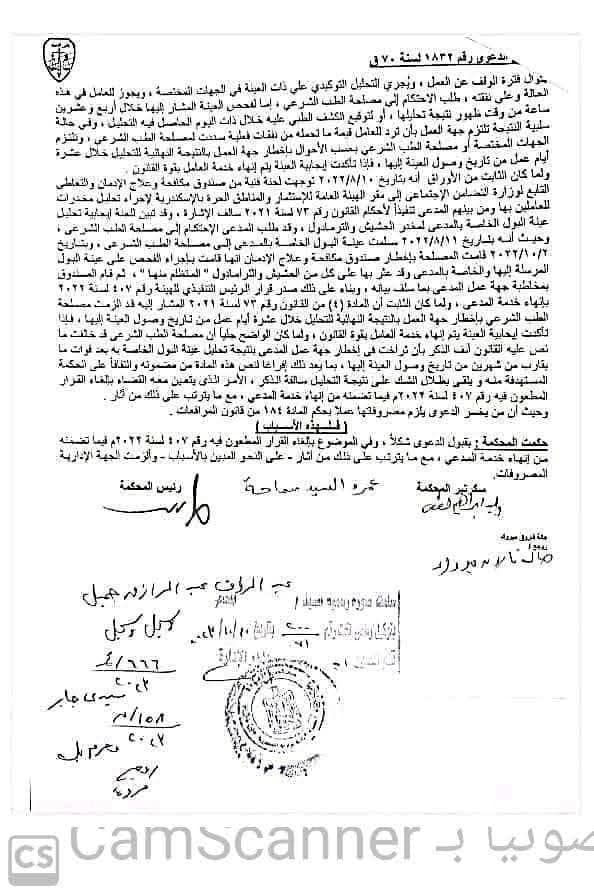 الدعوى رقم ١٨٣٢ لسنة ٧٠ ق
طوال فترة الوقف عن العمل ، ويُجري التحليل التوكيدي على ذات العينة في الجهات المختصة ، ويجوز للعامل في هذه
الحالة وعلى نفقته ، طلب الاحتكام إلى مصلحة الطب الشرعي ، إما لفحص العينة المشار إليها خلال أربع وعشرين
ساعة من وقت ظهور نتيجة تحليلها ، أو لتوقيع الكشف الطبي عليه خلال ذات اليوم الحاصل فيه التحليل ، وفي حالة
سلبية النتيجة تلتزم جهة العمل بأن ترد للعامل قيمة ما تحمله من نفقات فعلية سددت لمصلحة الطب الشرعي ، وتلتزم
الجهات المختصة أو مصلحة الطب الشرعي بحسب الأحوال بإخطار جهة العمل بالنتيجة النهائية للتحليل خلال عشرة
أيام عمل من تاريخ وصول العينة إليها ، فإذا تأكدت إيجابية العينة يتم إنهاء خدمة العامل بقوة القانون .
ولما كان الثابت من الأوراق أنه بتاريخ ٢٠٢٢/٨/١٠ توجهت لجنة فنية من صندوق مكافحة وعلاج الإدمان والتعاطي
التابع لوزارة التضامن الإجتماعى إلى مقر الهيئة العامة للإستثمار والمناطق الحرة بالإسكندرية لإجراء تحليل مخدرات
للعاملين بها ومن بينهم المدعى تنفيذاً لأحكام القانون رقم ٧٣ لسنة ٢٠٢١ سالف الإشارة ، وقد تبين للجنة إيجابية تحليل
عينة البول الخاصة بالمدعى لمخدر الحشيش والترامادول ، وقد طلب المدعى الإحتكام إلى مصلحة الطب الشرعى ،
وحيث أنه بتاريخ ٢٠٢٢/٨/١١ سلمت عينة البول الخاصة بالمدعى إلى مصلحة الطب الشرعي ، وبتاريخ
٢٠٢٢/١٠/٢ قامت المصلحة بإخطار صندوق مكافحة وعلاج الإدمان انها قامت بإجراء الفحص على عينة البول
المرسلة إليها والخاصة بالمدعى وقد عثر بها على كل من الحشيش والترامادول " المتظلم منها " ، ثم قام الصندوق
بمخاطبة جهة عمل المدعى بما سلف بيانه ، وبناء على ذلك صدر قرار الرئيس التنفيذي للهيئة رقم ٤٠٧ لسنة ٢٠٢٢
بإنهاء خدمة المدعى ، ولما كان الثابت أن المادة (٤) من القانون رقم ٧٣ لسنة ٢٠٢١ المشار إليه قد الزمت مصلحة
الطب الشرعي بإخطار جهة العمل بالنتيجة النهائية للتحليل خلال عشرة أيام عمل من تاريخ وصول العينة إليها ، فإذا
تأكدت إيجابية العينة يتم إنهاء خدمة العامل بقوة القانون ، ولما كان الواضح جلياً أن مصلحة الطب الشرعى قد خالفت ما
نص عليه القانون آنف الذكر بأن تراخت في إخطار جهة عمل المدعى بنتيجة تحليل عينة البول الخاصة به بعد فوات ما
يقارب من شهرين من تاريخ وصول العينة إليها ، بما يعد ذلك إفراغا لنص هذه المادة من مضمونه والتفافاً على الحكمة
المستهدفة منه و يلقى بظلال الشك على نتيجة التحليل سالفة الذكر ، الأمر الذي يتعين معه القضاء بإلغاء القرار
المطعون فيه رقم ٤٠٧ لسنة ٢٠٢٢م فيما تضمنه من إنهاء خدمة المدعي ، مع ما يترتب على ذلك من آثار .
وحيث أن من يخسر الدعوى يلزم مصروفاتها عملا بحكم المادة ١٨٤ من قانون المرافعات .
( فـلـهـذه الأسـبـاب )
حكمت المحكمة : بقبول الدعوى شكلاً ، وفي الموضوع بإلغاء القرار المطعون فيه رقم ٤٠٧ لسنة ٢٠٢٢م فيما تضمنه
من إنهاء خدمة المدعي ، مع ما يترتب على ذلك من آثار - على النحو المبين بالأسباب - وألزمت الجهة الإدارية
المصروفات.
سكرتير المحكمة
رئيس المحكمة
عمرو السيد سماحة
عبد الرؤف عبد الرازق جميل
وكيل وكيل
٦٦٦/
٢٠٢٣
سيدى جابر
١٥٨/
٢٠٢٣
محرم بك
CS CamScanner ضوئيا بـ